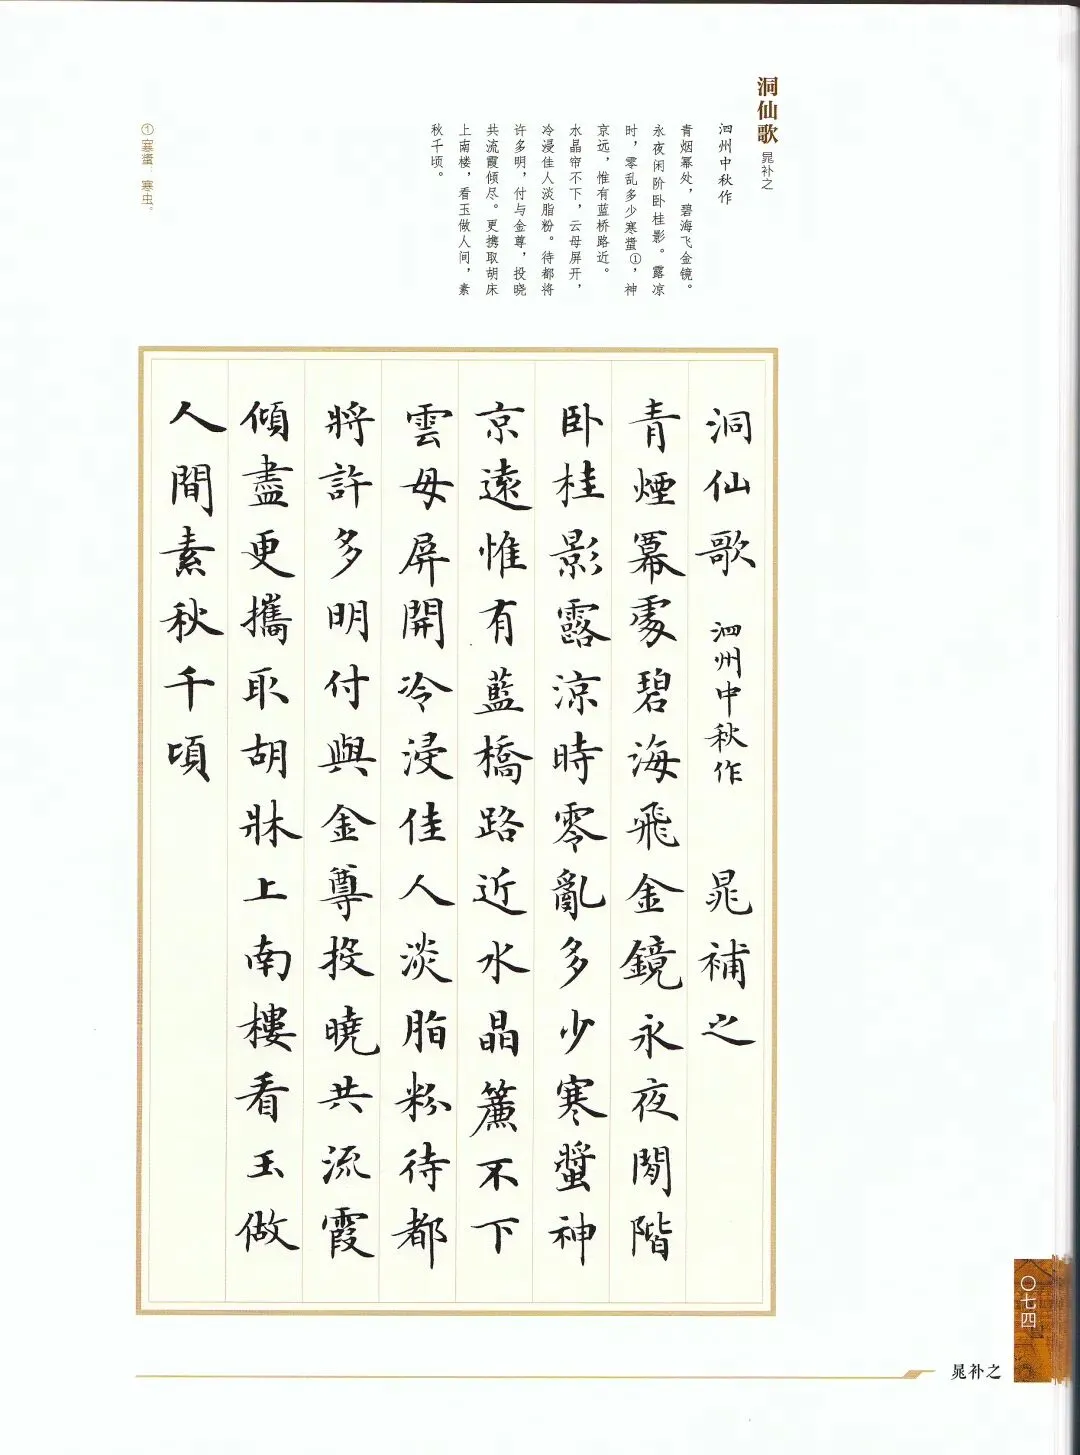 洞仙歌 晁补之
泗州中秋作
青烟幂处，碧海飞金镜。
永夜闲阶卧桂影。露凉
时，零乱多少寒螀①，神
京远，惟有蓝桥路近。
水晶帘不下，云母屏开，
冷浸佳人淡脂粉。待都将
许多明，付与金尊，投晓
共流霞倾尽。更携取胡床
上南楼，看玉做人间，素
秋千顷。
①寒螀：寒虫。
洞仙歌 泗州中秋作 晁補之
青煙冪處碧海飛金鏡永夜閒階
卧桂影露涼時零亂多少寒螿神
京遠惟有藍橋路近水晶簾不下
雲母屏開冷浸佳人淡脂粉待都
將許多明付與金尊投曉共流霞
傾盡更攜取胡牀上南樓看玉做
人間素秋千頃
〇七四
晁补之